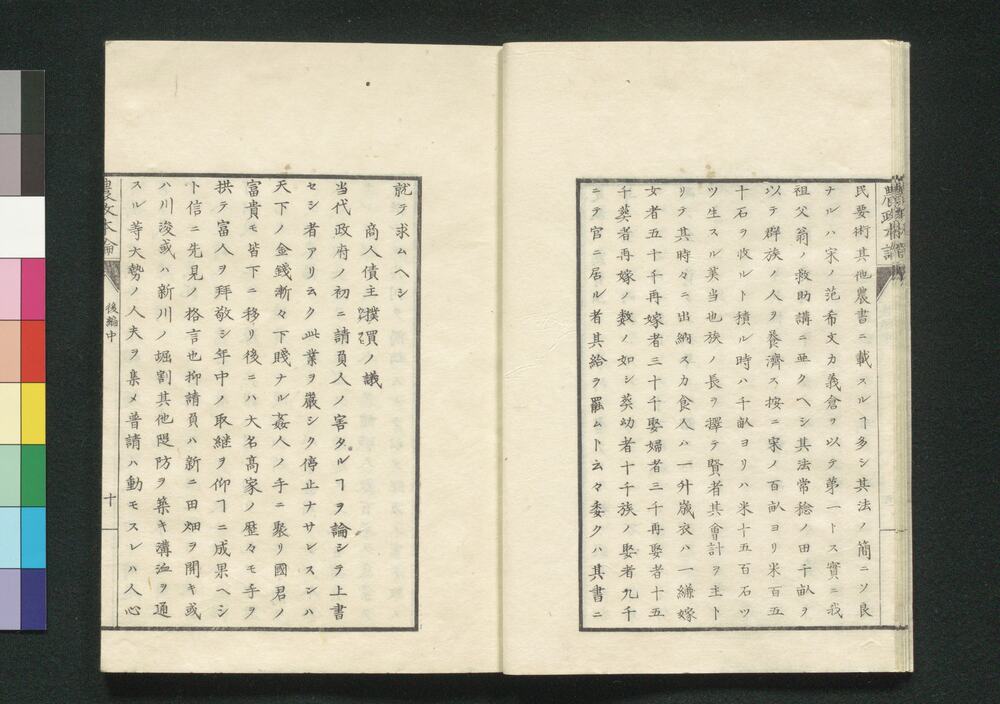 民要術其他農書ニ載スルヿ多シ其法ノ簡ニソ良
ナルハ宋ノ范希文カ義倉ヲ以テ第一トス實ニ我
祖父翁ノ救助講ニ亜クヘシ其法常稔ノ田千畝ヲ
以テ群族ノ人ヲ養濟ス按ニ宋ノ百畝ヨリ米百五
十石ヲ收ルト積ル時ハ千畝ヨリハ米十五百石ツ
ツ生スル葉当也族ノ長ヲ擇テ賢者其會計ヲ主ト
リテ其時々ニ出納スカ食人ハ一升歲衣ハ一縑嫁
女者五十千再嫁者三十千娶婦者三千再娶者十五
千葬者再嫁ノ数ノ如シ葬幼者十千族ノ娶者九千
ニテ官ニ居ル者其給ヲ羅ムト云々委クハ其書ニ
就テ求ムヘシ
商人債主撲買ノ議
当代政府ノ初ニ請負人ノ害タルヿヲ論シテ上書
セシ者アリ云ク此業ヲ嚴シク停止ナサレスンハ
天下ノ金錢漸々下賤ナル姦人ノ手ニ聚リ國君ノ
富貴モ皆下ニ移リ後ニハ大名高家ノ歴々モ手ヲ
拱テ富人ヲ拜敬シ年中ノ取継ヲ仰ヿニ成果ヘシ
ト信ニ先見ノ格言也抑請負ハ新ニ田畑ヲ開キ或
ハ川浚或ハ新川ノ堀割其他隄防ヲ築キ溝洫ヲ通
スル等大勢ノ人夫ヲ集メ普請ハ動モスレハ人心
農政本論
後編中
十